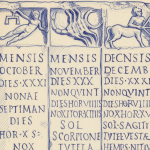 MENSIS
OCTOBER
DIES·XXXI
NONAE
SEPTIMAN
DIES
HOR·X S:
NOX
MENSIS
NOVEMBER
DIES XXX
NON QVINT
DIES HOR VIIIIS
NOX HOR XIIIIS
SOL
SCORPIONE
TVTELA
DECEMB
DIES·XXXI
NON QVINT
DIES HOR VIIII
NOX HOR XV
SOL·SAGIT
TVTE·VESTAE